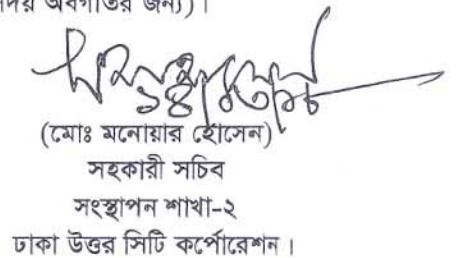 দয় অবগতির জন্য)।
(মোঃ মনোয়ার হোসেন)
সহকারী সচিব
সংস্থাপন শাখা-২
ঢাকা উত্তর সিটি কর্পোরেশন।